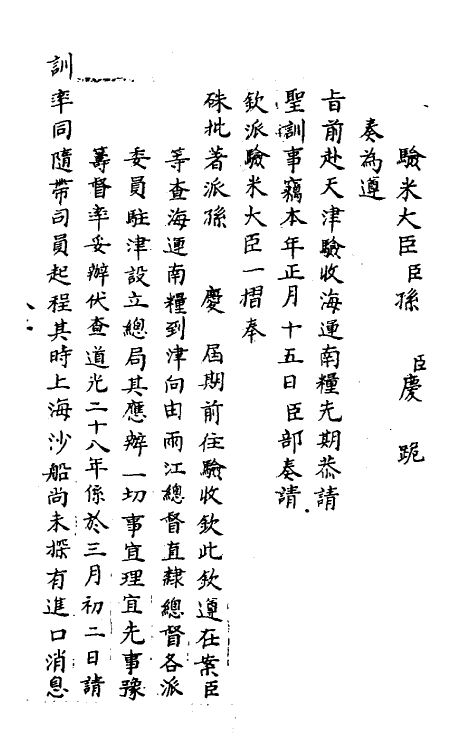 驗米大臣臣孫　臣慶　跪
奏為遵
旨前赴天津驗收海運南糧先期恭請
聖訓事竊本年正月十五日臣部奏請
欽派驗米大臣一摺奉
硃批著派孫　慶　屆期前往驗收欽此欽遵在案臣
等查海運南糧到津向由兩江總督直隸總督各派
委員駐津設立總局其應辦一切事宜理宜先事豫
籌督率妥辦伏查道光二十八年係於三月初二日請
訓率同隨帶司員起程其時上海沙船尚未探有進口消息